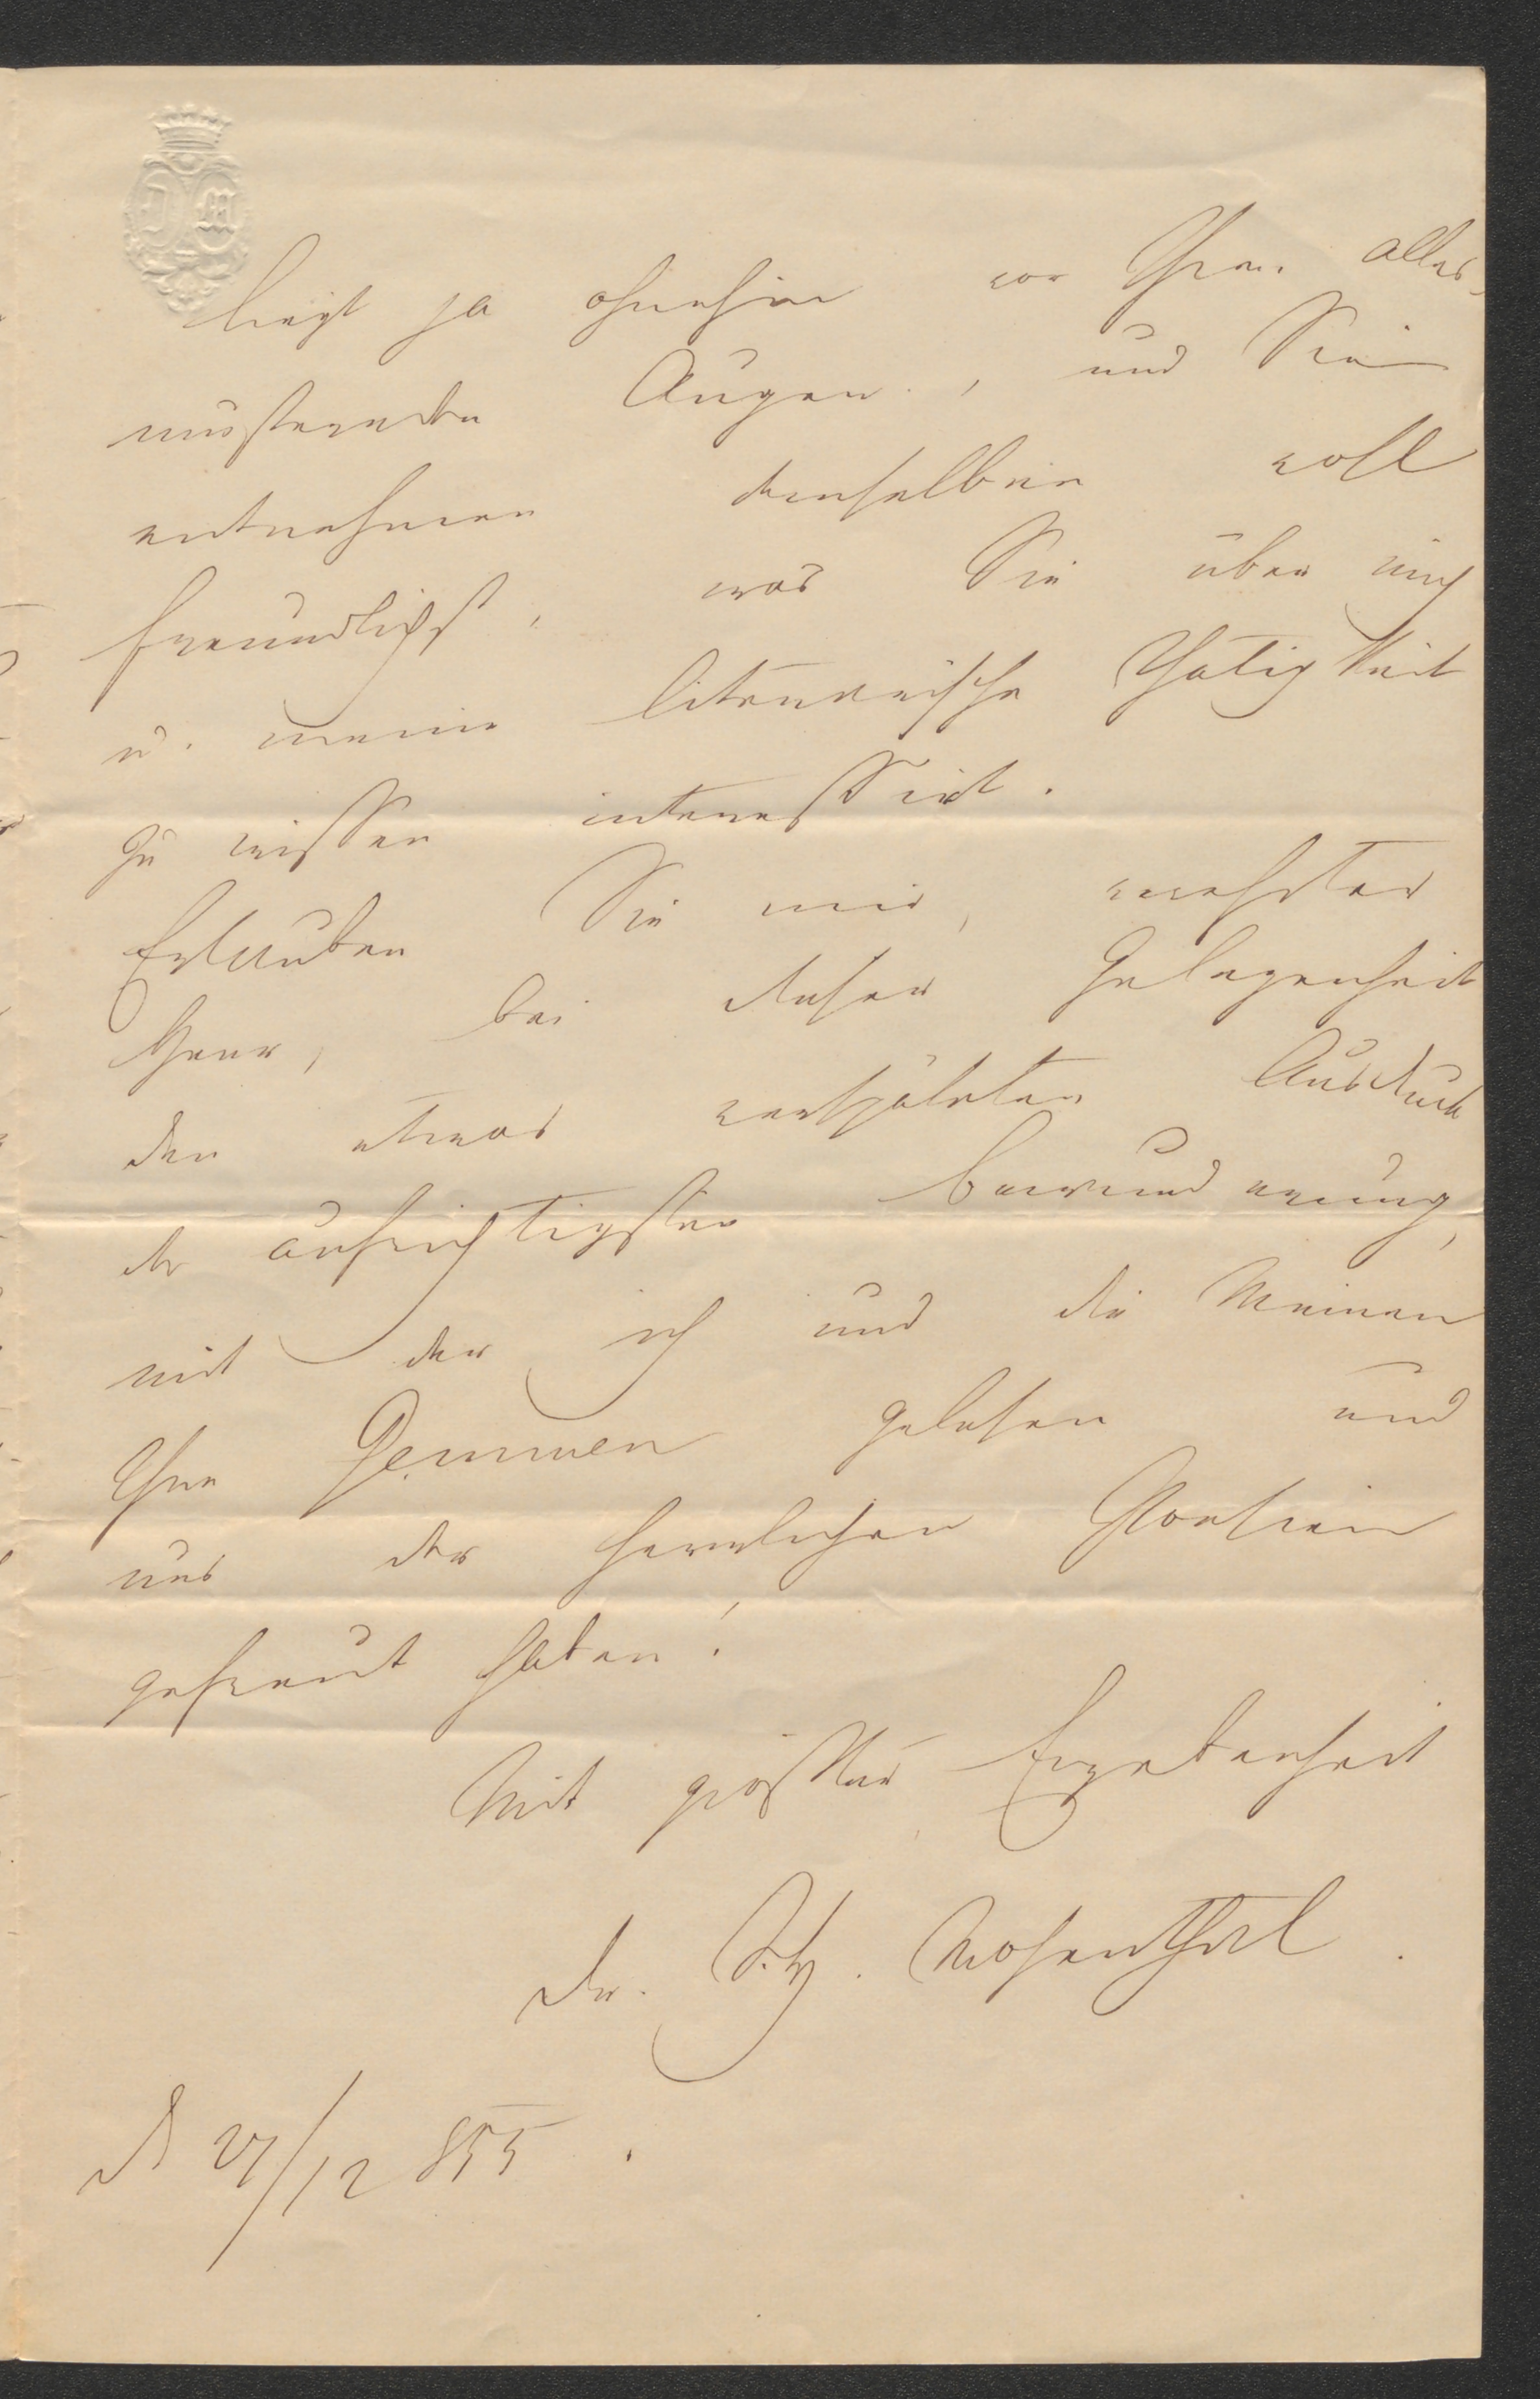 liegt ja ohnehin vor Ihren alles
musternden Augen, und Sie
entnehmen demselben wohl
freundlichst, was Sie über mich
u. meine literarische Thätigkeit
zu wissen interessirt.
Erlauben Sie mir, verehrter
Herr, bei dieser Gelegenheit
den etwas verspäteten Ausdruck
der aufrichtigsten Bewunderung,
mit der ich und die Meinen
Ihre Gemmen gelesen und
uns der herrlichen Poesien
gefreut haben!
Mit größter Ergebenheit
Dr. Mosenthal.
27/12 855.